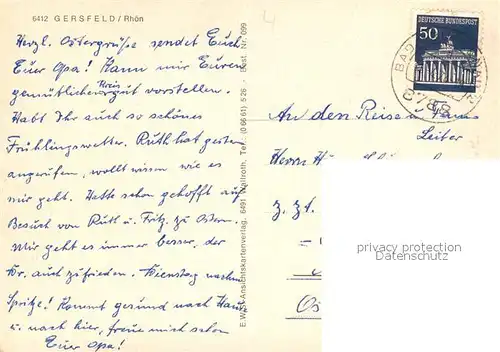 6412 GERSFELD / Rhön
Herzl. Ostergrüße sendet Euch
Euer Opa! Kann mir Euren
gemütlichen Kreis vorstellen.
Habt Ihr auch so schönes
Frühlingswetter. Ruth hat gestern
angerufen, wollt wissen wie es
mir geht. Hatte schon gehofft auf
Besuch von Ruth u. Fritz zu Ostern.
Mir geht es immer besser, der
Dr. auch zufrieden. Dienstag
Spritze! Kommt gesund nach Haus
u. nach hier, freue mich schon
Euer Opa!
E.W.S. Ansichtskartenverlag, 6491 Wallroth, Tel.: (0 66 61) 5 26 Best. Nr. 099
DEUTSCHE BUNDESPOST
50
BAD
8788
An den Reise
Leiter
Herrn
z. Zt.
privacy protection
Datenschutz